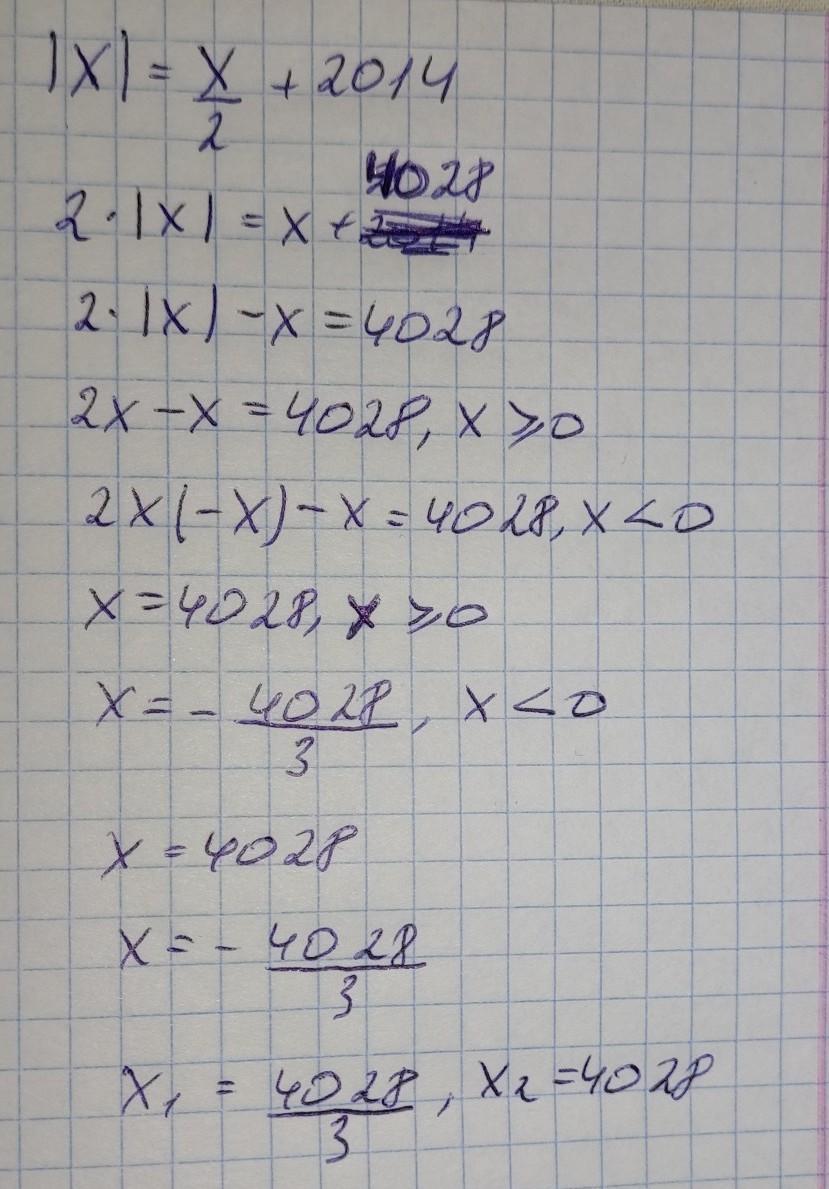 |x| = x/2 + 2014
4028
2·|x| = x +
2·|x| - x = 4028
2x - x = 4028, x ⩾ 0
2x(-x) - x = 4028, x < 0
x = 4028, x ⩾ 0
x = - 4028/3, x < 0
x = 4028
x = - 4028/3
x₁ = 4028/3, x₂ = 4028